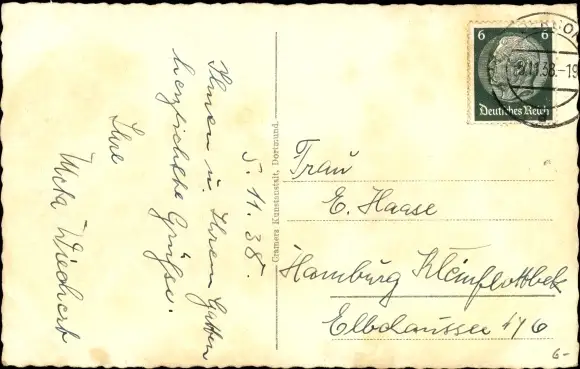 5. 11. 38.
Ihnen u. Ihrem Gatten
herzlichste Grüße.
Ihre
Wiechert
Cramers Kunstanstalt, Dortmund.
6 6
Deutsches Reich
11.38.-19
Frau
E. Haase
Hamburg Kleinflottbek
Elbchaussee
6-